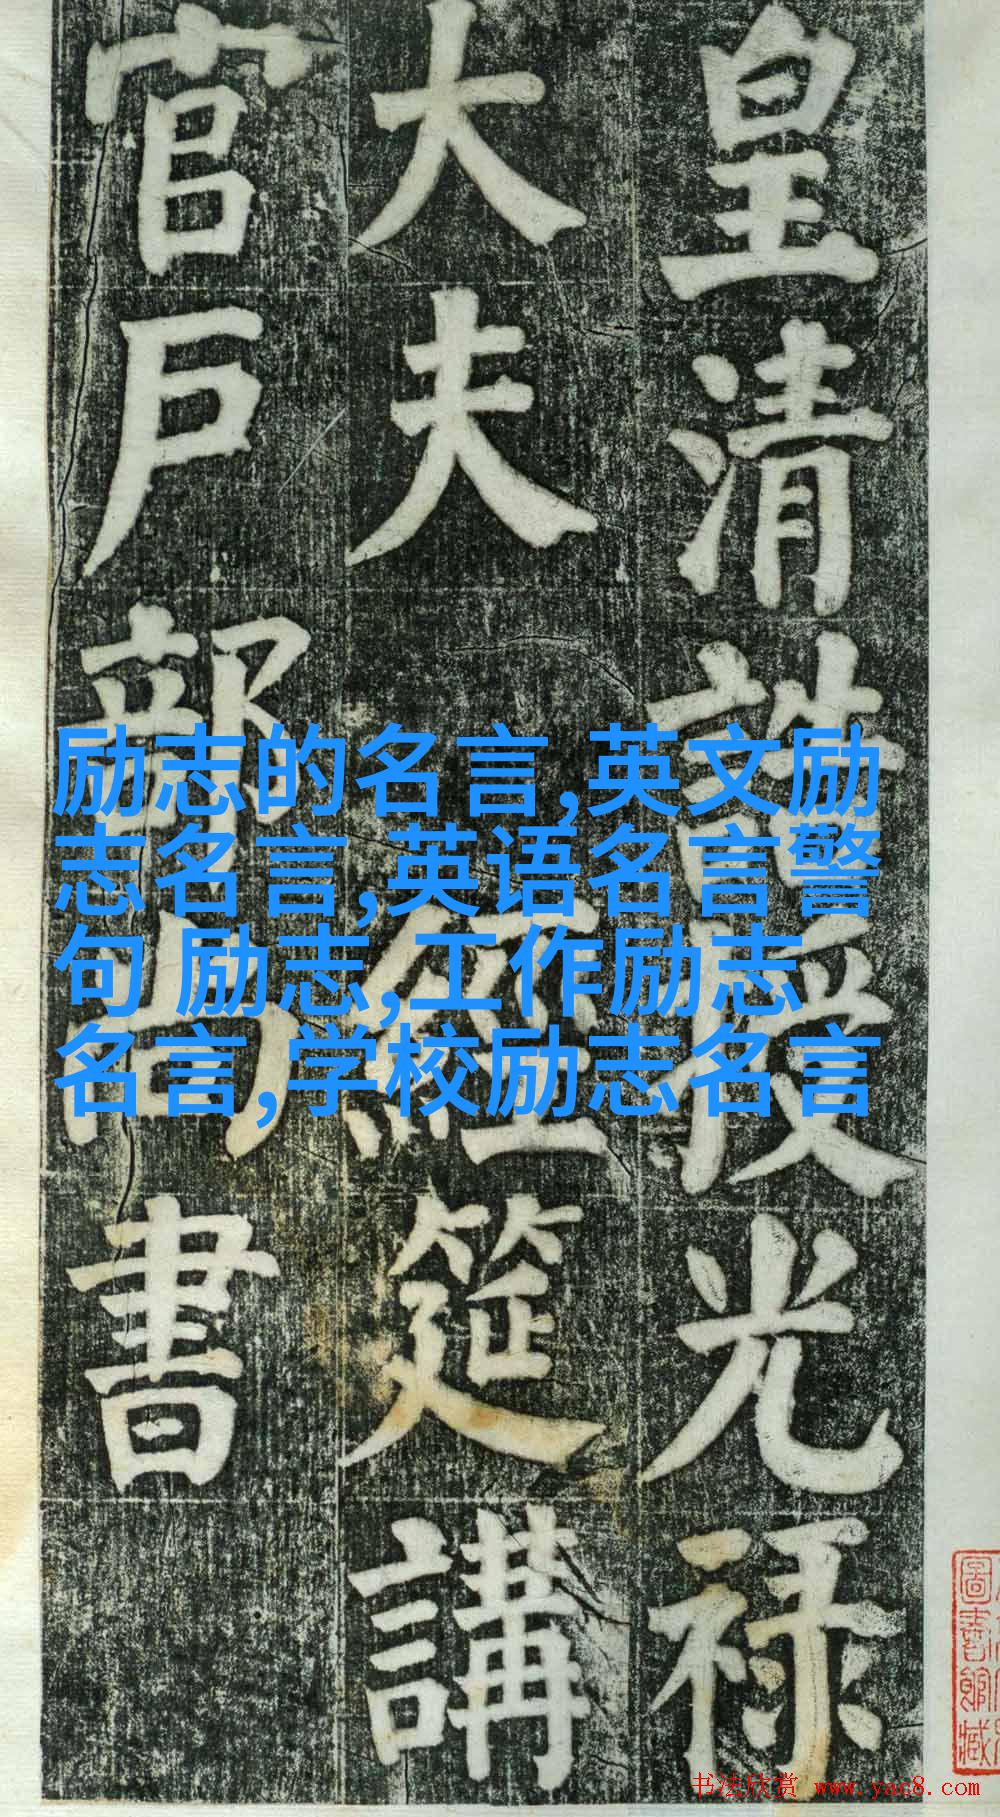 皇清誥授光禄
大夫經筵講
官戸部尚書
励志的名言,英文励
志名言,英语名言警
句 励志,工作励志
名言,学校励志名言
圖書館藏
书法欣赏 www.yac8.com